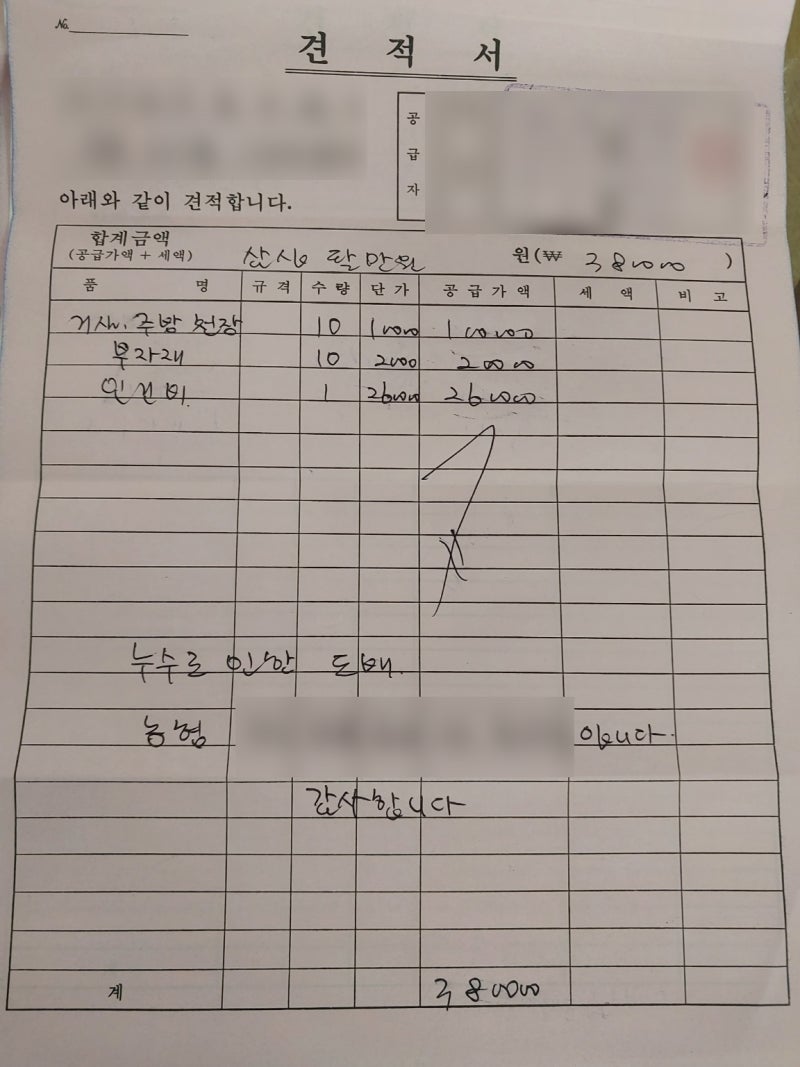 No.
견 적 서
공급자
아래와 같이 견적합니다.
합계금액
(공급가액 + 세액) 삼십 팔만원 원(₩ 380000 )
품 명 규격 수량 단가 공급가액 세 액 비 고
거실.주방 천장 10 10000 100000
부자재 10 2000 20000
인건비 1 260000 260000
누수로 인한 도배
농협 입니다.
감사합니다
계 380000